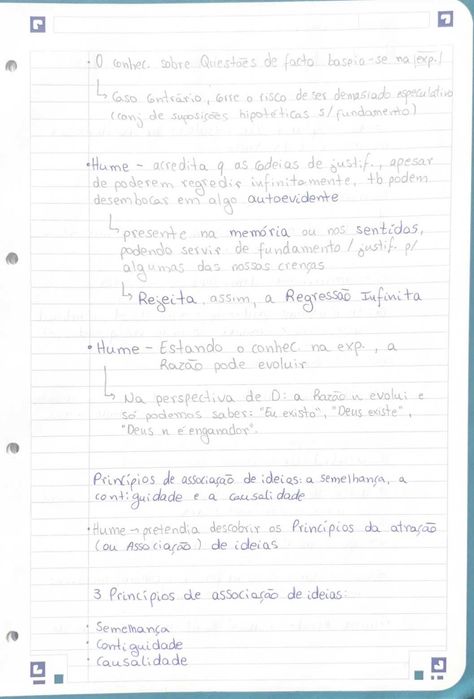 · O conhec. sobre Questões de facto baseia-se na exp./
↳ Caso contrário, corre o risco de ser demasiado especulativo
(conj de suposições hipotéticas s/ fundamento)
· Hume - acredita q as cadeias de justif., apesar
de poderem regredir infinitamente, tb podem
desembocar em algo autoevidente
↳ presente na memória ou nos sentidos,
podendo servir de fundamento / justif. p/
algumas das nossas crenças
↳ Rejeita, assim, a Regressão Infinita
· Hume - Estando o conhec. na exp., a
Razão pode evoluir
↳ Na perspectiva de D: a Razão n evolui e
só podemos saber: "Eu existo", "Deus existe",
"Deus n é enganador".
Princípios de associação de ideias: a semelhança, a
contiguidade e a causalidade
· Hume → pretendia descobrir os Princípios da atração
(ou Associação) de ideias
3 Princípios de associação de ideias:
· Semelhança
· Contiguidade
· Causalidade